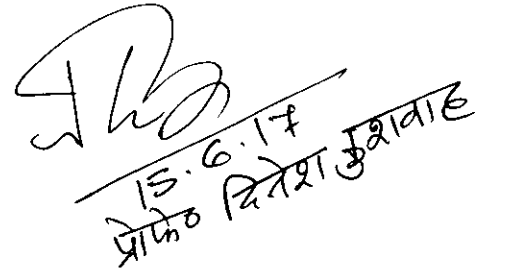 15.6.17
प्रोफे० दिनेश कुशवाह